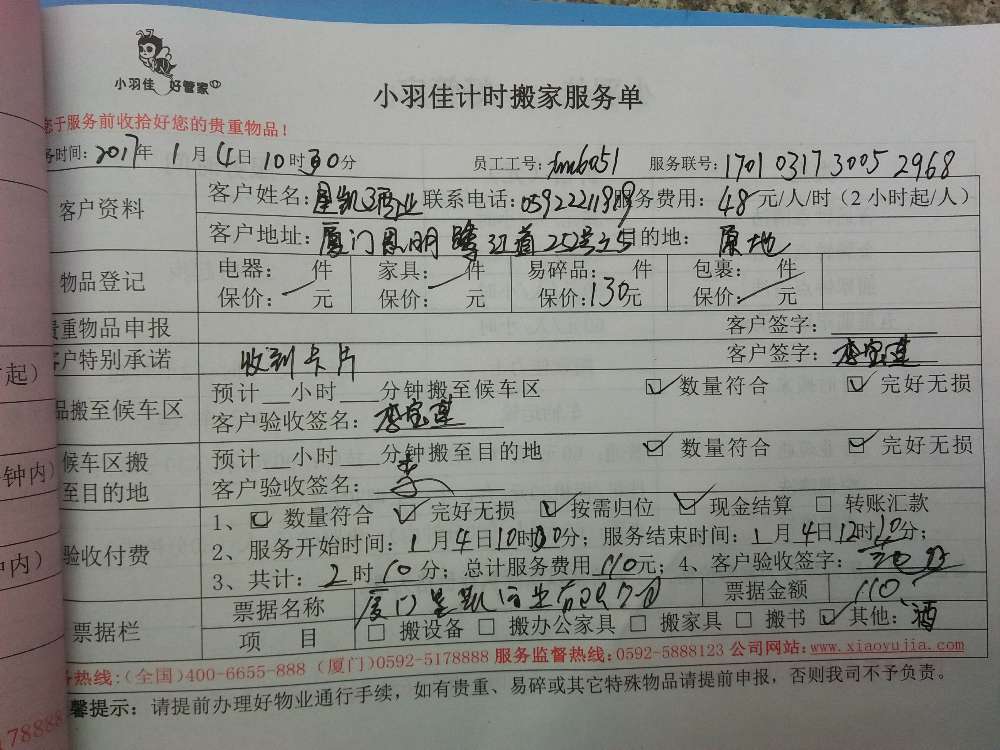 小羽佳 好管家
小羽佳计时搬家服务单
于服务前收拾好您的贵重物品！
务时间：2017年 1月4日10时30分 员工工号： 服务联号：1701 0317 3005 2968
客户资料 客户姓名： 联系电话：0592 服务费用：48元/人/时（2小时起/人）
客户地址：厦门思明鹭江道 目的地：原地
物品登记 电器： 件 家具： 件 易碎品： 件 包裹： 件
保价： 元 保价： 元 保价：130元 保价： 元
贵重物品申报 客户签字：
客户特别承诺 收到卡片 客户签字：
品搬至候车区 预计 小时 分钟搬至候车区 数量符合 完好无损
客户验收签名：
候车区搬至目的地 预计 小时 分钟搬至目的地 数量符合 完好无损
客户验收签名：李
验收付费 1、 数量符合 完好无损 按需归位 现金结算 转账汇款
2、服务开始时间：1月4日10时30分；服务结束时间：1月4日12时10分；
3、共计：2时10分；总计服务费用110元；4、客户验收签字：
票据栏 票据名称 厦门 票据金额 110
项 目 搬设备 搬办公家具 搬家具 搬书 其他：酒
务热线：(全国)400-6655-888 (厦门)0592-5178888 服务监督热线：0592-5888123 公司网站：www.xiaoyujia.com
馨提示：请提前办理好物业通行手续，如有贵重、易碎或其它特殊物品请提前申报，否则我司不予负责。
起）
钟内）
内）
178888